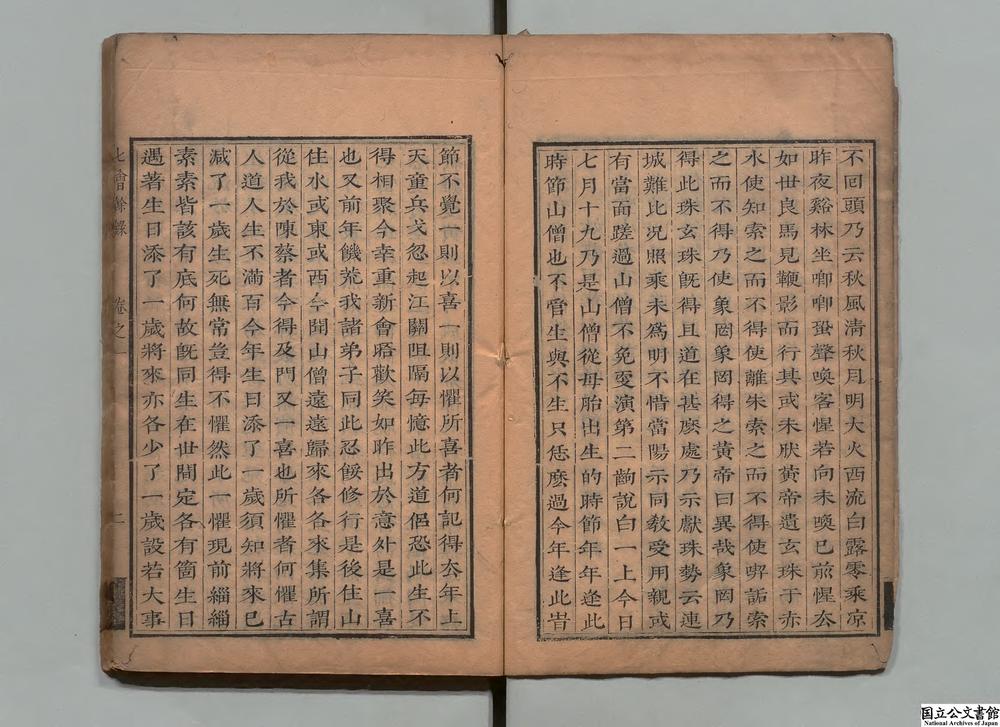 不回頭乃云秋風清秋月明大火西流白露零乘凉
昨夜谿林坐喞喞蛩聲喚客惺若向未喚已前惺去
如世良馬見鞭影而行其或未狀黄帝遺玄珠于赤
水使知索之而不得使離朱索之而不得使喫詬索
之而不得乃使象罔象罔得之黄帝曰異哉象罔乃
得此珠玄珠旣得且道在甚麽處乃示獻珠勢云連
城難比况照乘未爲明不惜當陽示同教受用親或
有當面蹉過山僧不免更演第二齣說白一上今日
七月十九乃是山僧從母胎出生的時節年年逢此
時節山僧也不管生與不生只恁麽過今年逢此旹
節不覺一則以喜一則以懼所喜者何記得去年上
天童兵戈忽起江關阻隔每憶此方道侶恐此生不
得相聚今幸重新會晤歡笑如昨出於意外是一喜
也又前年饑荒我諸弟子同此忍餒修行是後住山
住水或東或西今聞山僧遠遠歸來各各來集所謂
從我於陳蔡者今得及門又一喜也所懼者何懼古
人道人生不滿百今年生日添了一歲須知將來已
減了一歲生死無常豈得不懼然此一懼現前緇緇
素素皆該有底何故旣同生在世間定各有箇生日
遇著生日添了一歲將來亦各少了一歲設若大事
七會餘錄
卷之一
二
国立公文書館
National Archives of Japan